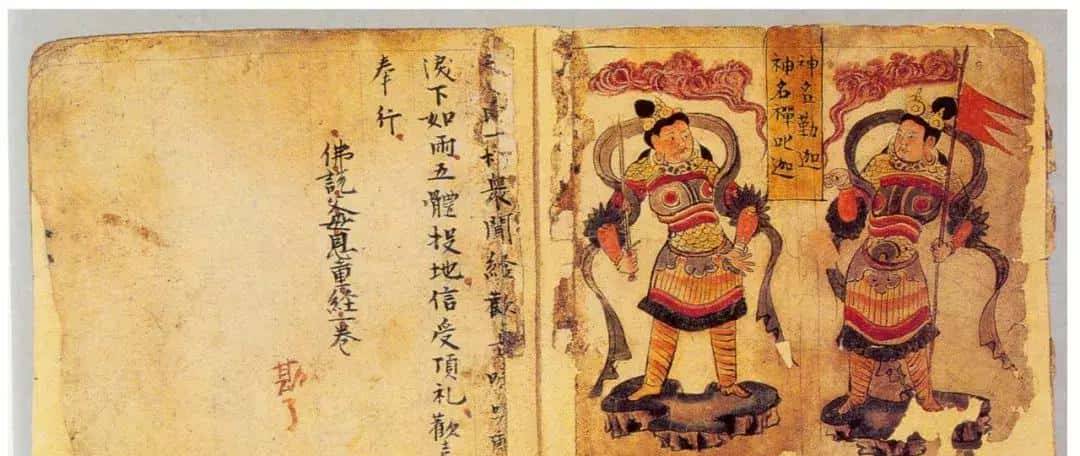 神名勤迦
神名禪叱迦
一切衆聞經歡
淚下如雨五體投地信受頂礼歡
奉行
佛說父母恩重經一卷
勘了